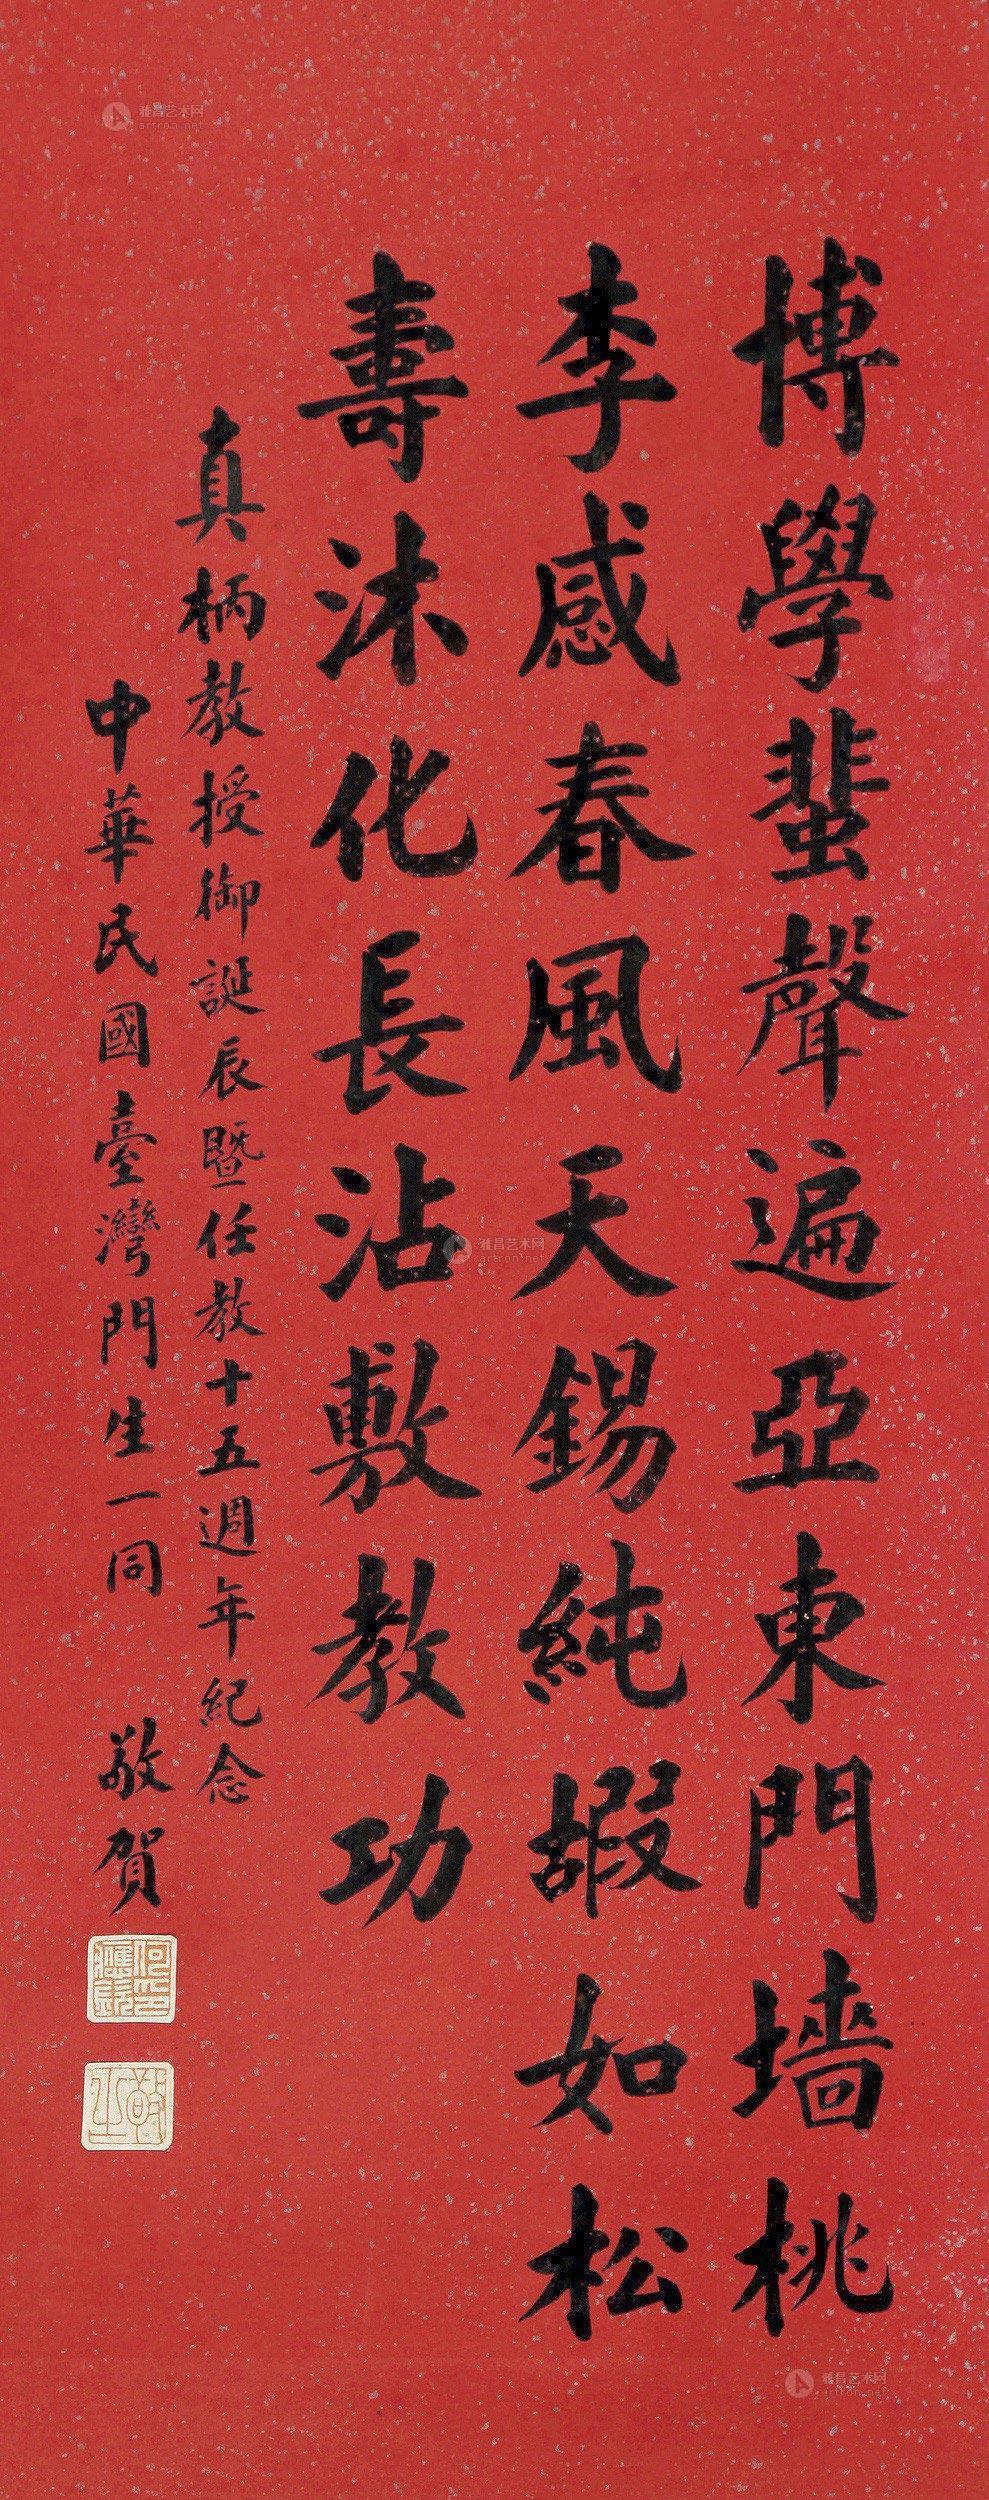 博學蜚聲遍亞東門墻桃
李感春風天錫純嘏如松
壽沐化長沾敷教功
真柄教授御誕辰暨任教十五週年紀念
中華民國臺灣門生一同 敬賀
雅昌艺术网
artron.net
雅昌艺术网
artron.net
雅昌艺术网
artron.net